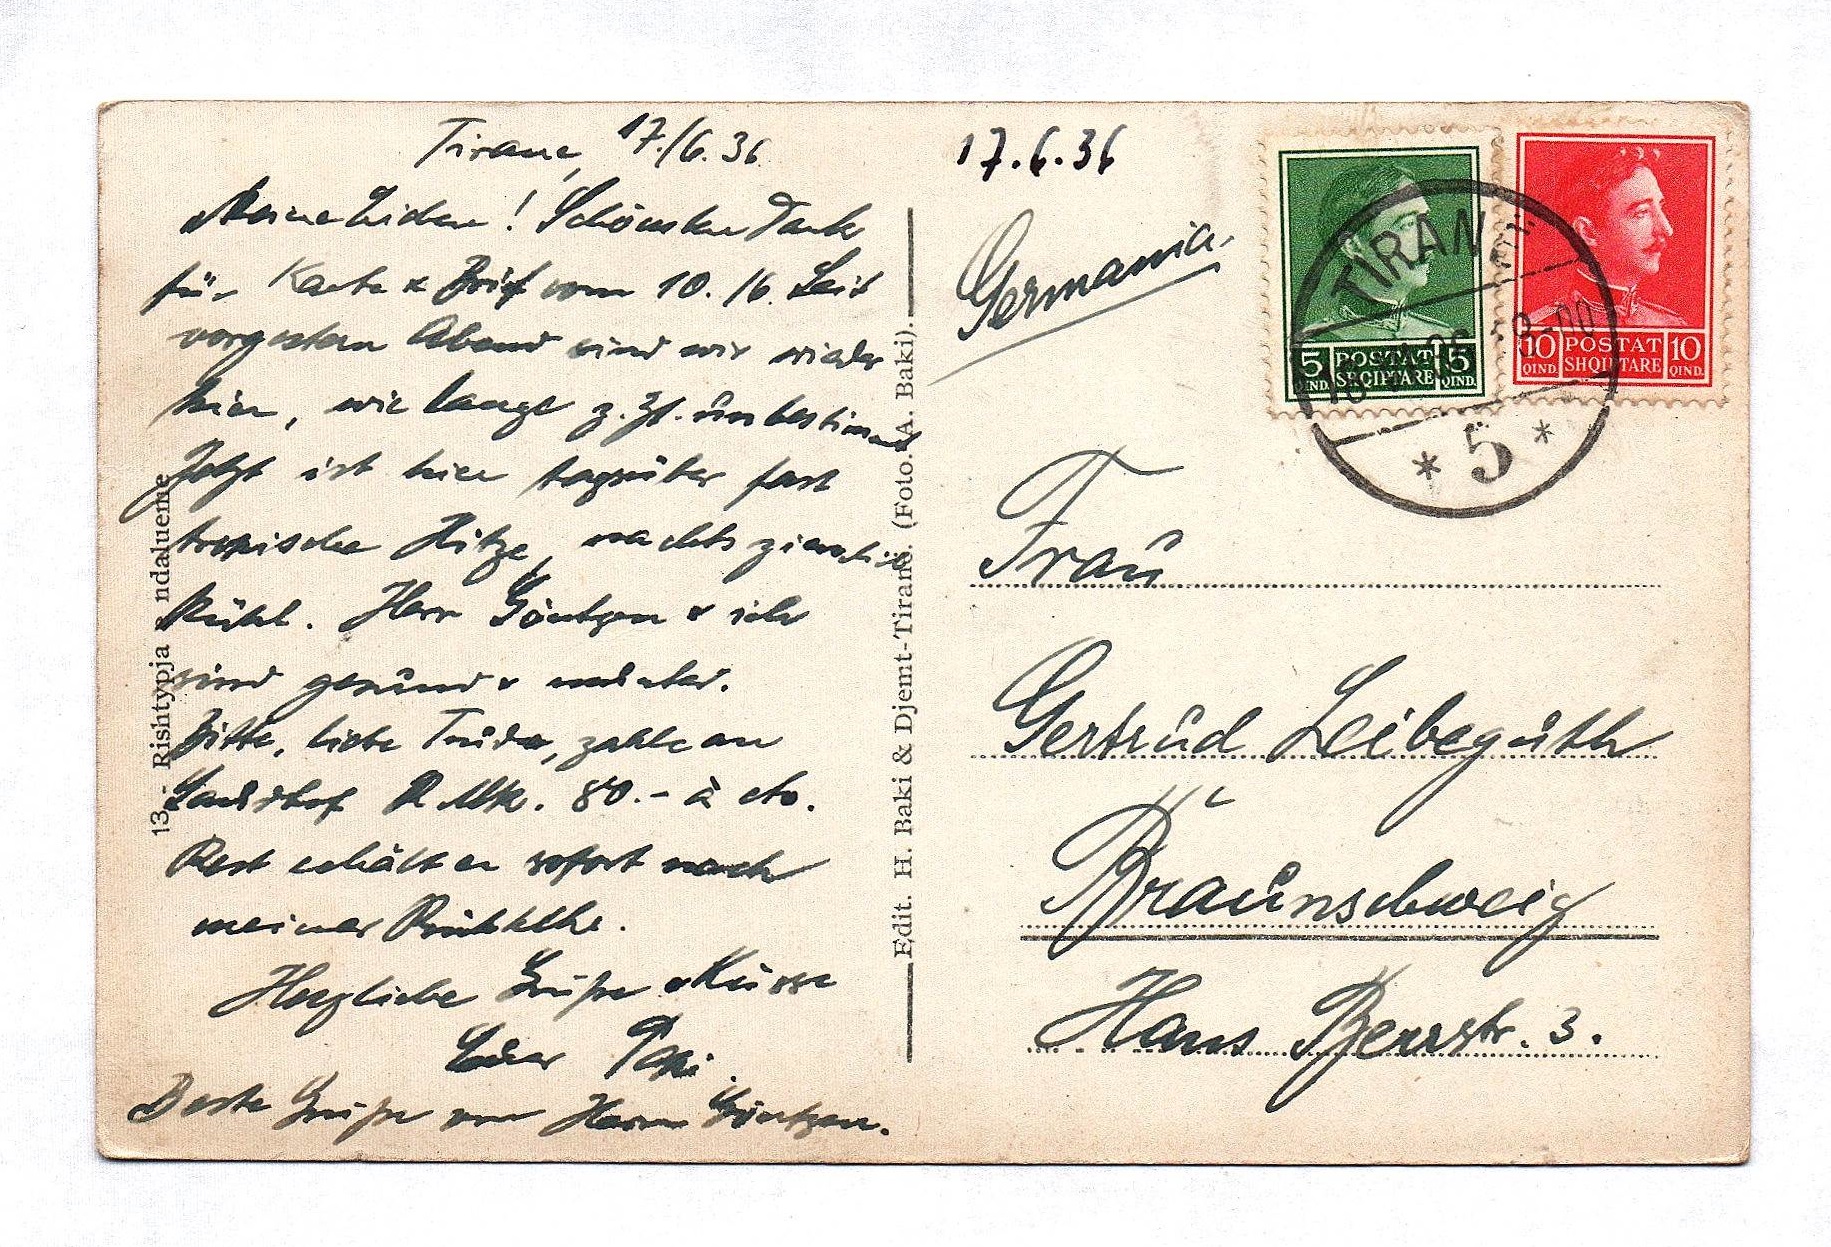 Tirane, 17./6. 36
Meine Lieben! Schönsten Dank
für Karte & Brief vom 10./6. Seit
vorgestern Abend sind wir wieder
hier, wie lange z. Zt. unbestimmt
Jetzt ist hier tagsüber fast
tropische Hitze, nachts ziemlich
kühl. Herr Göntgen & ich
sind gesund & munter.
Bitte, liebe Trude, zahle an
Landhof R Mk. 80.- à cto.
Rest erhält er sofort nach
meiner Rückkehr.
Herzliche Grüße & Küsse
Euer Papi.
Beste Grüße von Herrn Göntgen.
13.- Rishtypja ndalueme
Edit. H. Baki & Djemt-Tiranë. (Foto. A. Baki).
17.6.36
Germania.
5 POSTAT 5
QIND. SHQIPTARE QIND.
10 POSTAT 10
QIND. SHQIPTARE QIND.
TIRANË
* 5 *
Frau
Gertrud Leibeguth
Braunschweig
Hans Porrstr. 3.